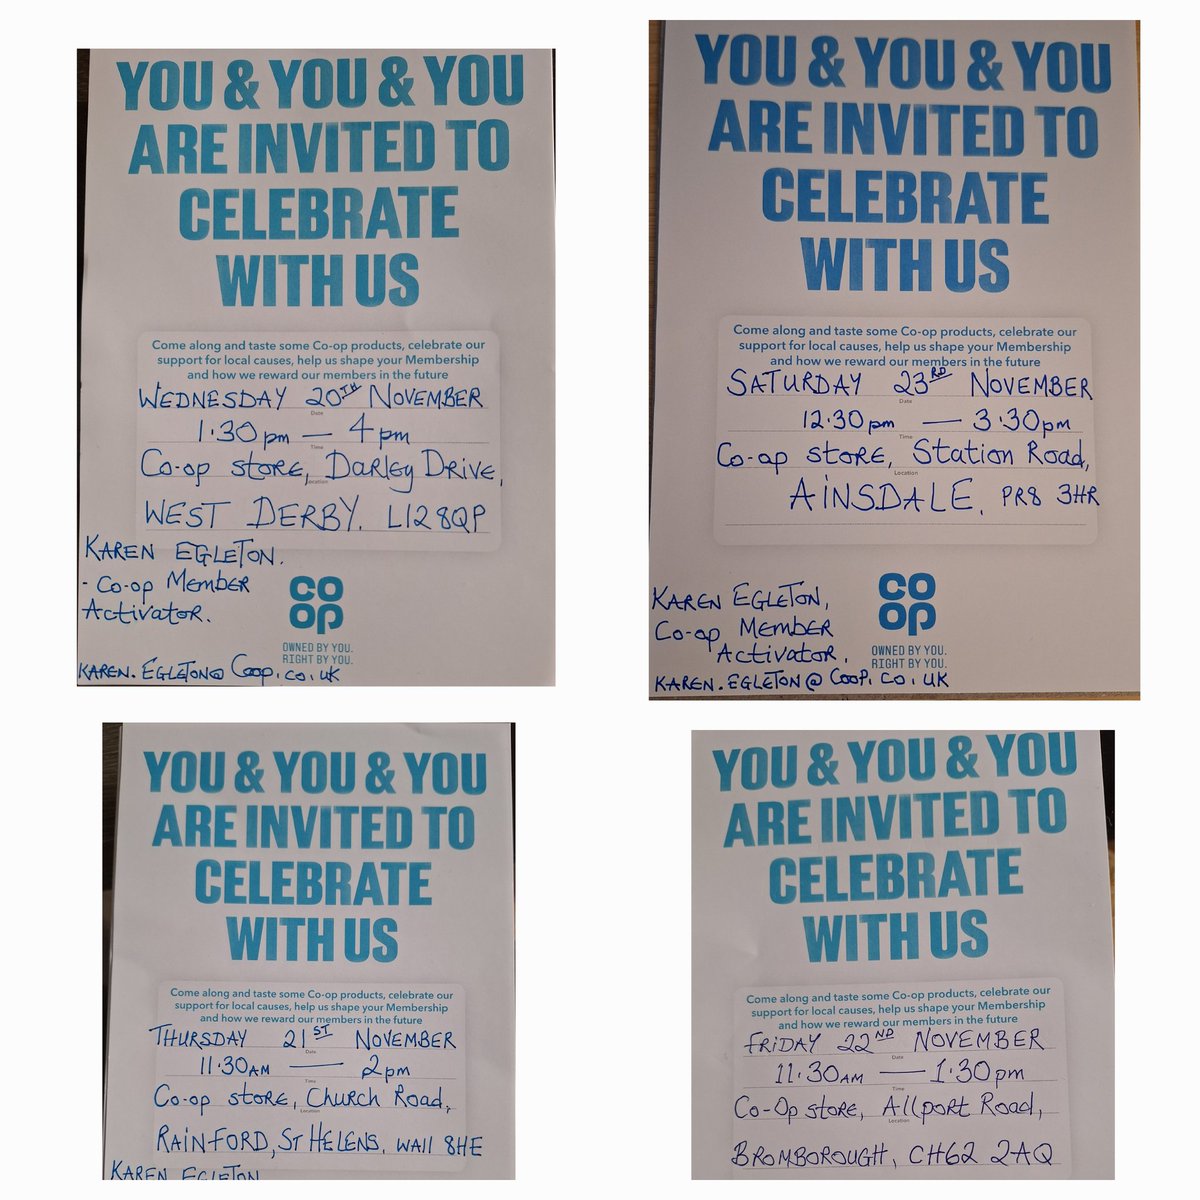 YOU & YOU & YOU
ARE INVITED TO
CELEBRATE
WITH US
Come along and taste some Co-op products, celebrate our
support for local causes, help us shape your Membership
and how we reward our members in the future
WEDNESDAY 20TH NOVEMBER
Date
1.30pm — 4pm
Time
Co-op store, Darley Drive,
Location
WEST DERBY. L12 8QP
KAREN EGLETON.
- Co-op Member
Activator.
CO
OP
OWNED BY YOU.
RIGHT BY YOU.
KAREN.EGLETON@Coop.co.uk
YOU & YOU & YOU
ARE INVITED TO
CELEBRATE
WITH US
Come along and taste some Co-op products, celebrate our
support for local causes, help us shape your Membership
and how we reward our members in the future
SATURDAY 23RD NOVEMBER
Date
12.30pm — 3.30pm
Time
Co-op store, Station Road,
Location
AINSDALE, PR8 3HR
KAREN EGLETON,
Co-op MEMBER
Activator.
CO
OP
OWNED BY YOU.
RIGHT BY YOU.
KAREN.EGLETON@Coop.co.UK
YOU & YOU & YOU
ARE INVITED TO
CELEBRATE
WITH US
Come along and taste some Co-op products, celebrate our
support for local causes, help us shape your Membership
and how we reward our members in the future
THURSDAY 21ST NOVEMBER
Date
11.30AM — 2pm
Time
Co-op store, Church Road,
Location
RAINFORD, ST HELENS, WA11 8HE
KAREN EGLETON
YOU & YOU & YOU
ARE INVITED TO
CELEBRATE
WITH US
Come along and taste some Co-op products, celebrate our
support for local causes, help us shape your Membership
and how we reward our members in the future
FRIDAY 22ND NOVEMBER
Date
11.30AM — 1.30pm
Time
Co-Op store, Allport Road,
Location
BROMBOROUGH, CH62 2AQ